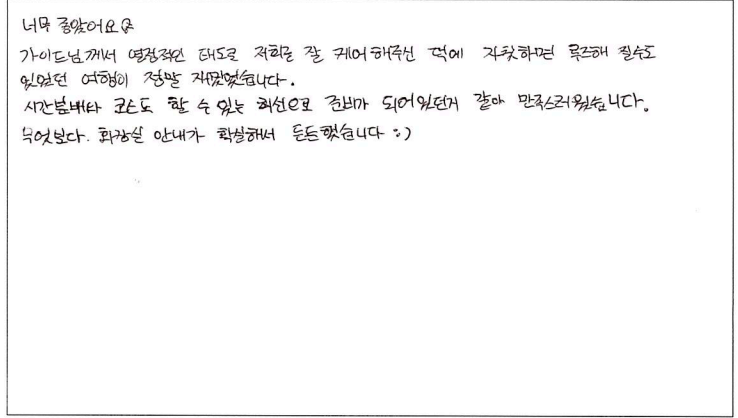 너무 좋았어요
가이드님께서 열정적인 태도로 저희를 잘 케어해주신 덕에 자칫하면 루즈해 질수도
있었던 여행이 정말 재밌었습니다.
시간분배나 코스도 할 수 있는 최선으로 준비가 되어있던거 같아 만족스러웠습니다.
무엇보다. 화장실 안내가 확실해서 든든했습니다 :)